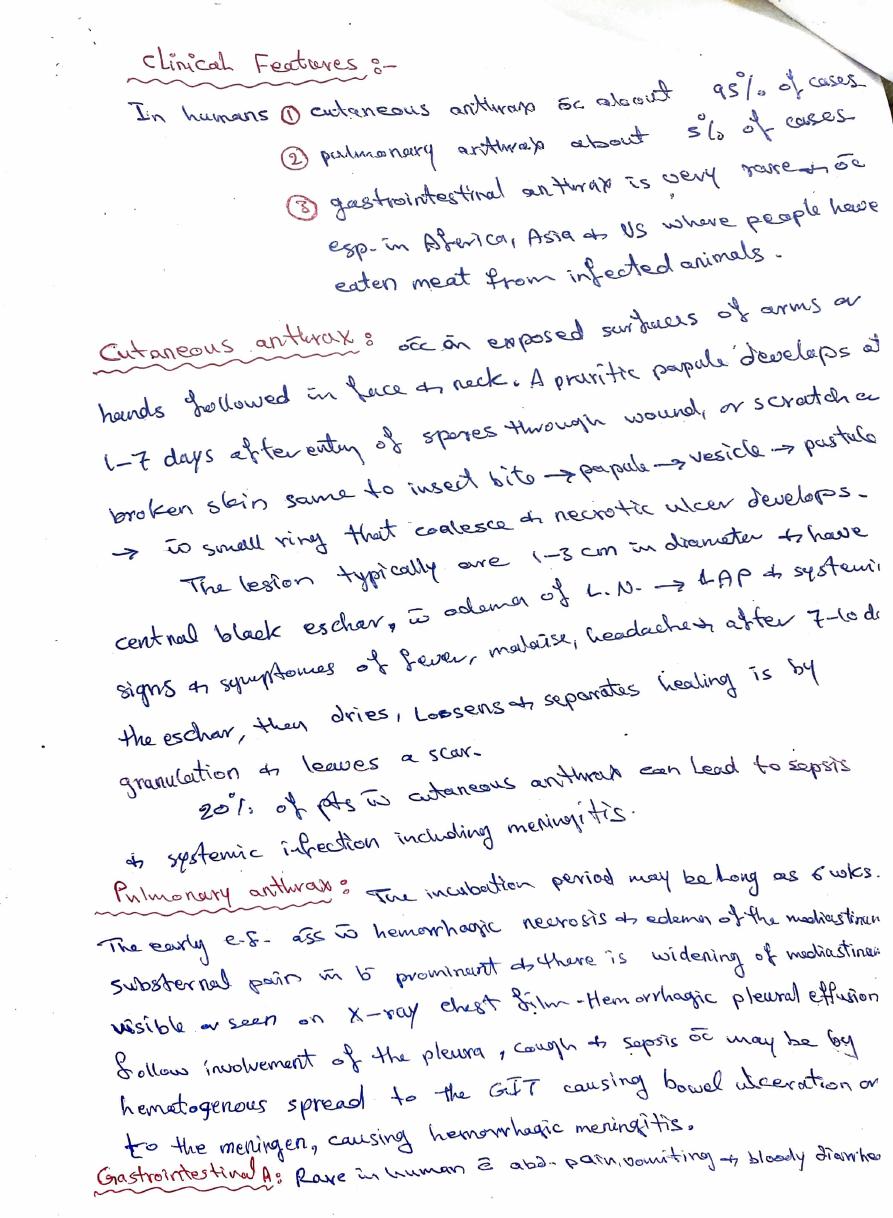 Clinical Features :-
In humans ① cutaneous anthrax o̅c̅ about 95% of cases
② pulmonary anthrax about 5% of cases
③ gastrointestinal anthrax is very rare & o̅c̅
esp. in Africa, Asia & US where people have
eaten meat from infected animals.
Cutaneous anthrax: o̅c̅c̅ on exposed surfaces of arms or
hands followed in face & neck. A pruritic papule develops
1-7 days after entry of spores through wound, or scratch
broken skin same to insect bite → papule → vesicle → pustule
→ w̅ small ring that coalesce & necrotic ulcer develops.
The lesion typically are 1-3 cm in diameter & have
central black eschar, w̅ odema of L.N. → LAP & systemi
signs & symptomes of fever, malaise, headache & after 7-10 d
the eschar, then dries, Loosens & separates healing is by
granulation & leaves a scar.
20% of pts w̅ cutaneous anthrax can Lead to sepsis
& systemic infection including meningitis.
Pulmonary anthrax: The incubation period may be Long as 6 wks.
The early c.f. ass w̅ hemorrhagic necrosis & edema of the mediastinum
substernal pain prominent & there is widening of mediastinum
visible or seen on X-ray chest film - Hemorrhagic pleural effusion
follow involvement of the pleura, cough & sepsis o̅c̅ may be by
hematogenous spread to the GIT causing bowel ulceration or
to the meningen, causing hemorrhagic meningitis.
Gastrointestinal A: Rare in human c̅ abd. pain, vomiting & bloody diarrhea